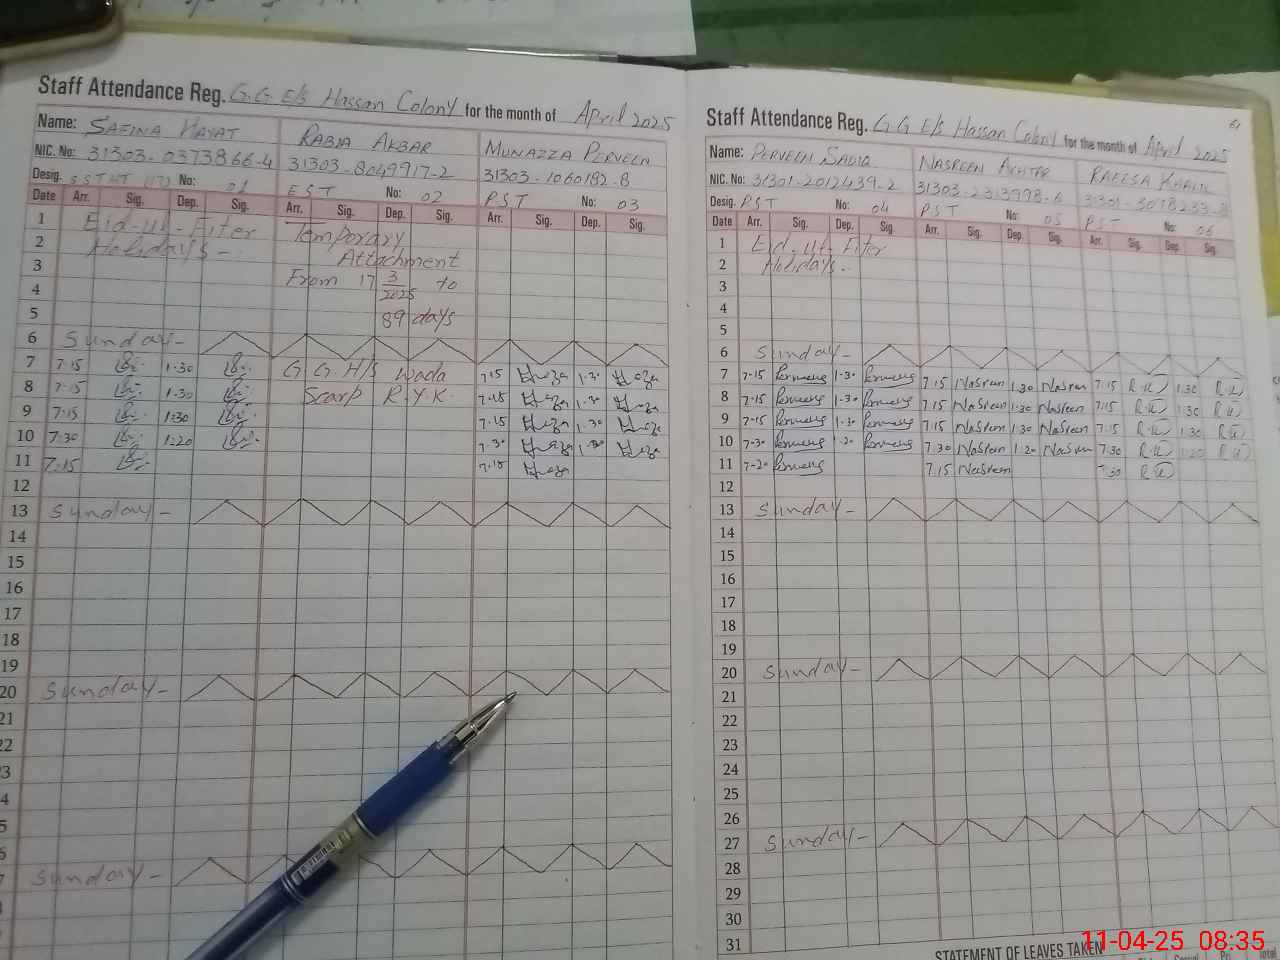 Staff Attendance Reg. G.G E/s Hassan Colony for the month of April 2025
Name: SAFINA HAYAT RABIA AKBAR MUNAZZA PERVEEN
NIC. No: 31303-0373866-4 31303-8049917-2 31303-1060182-8
Desig. No: 01 EST No: 02 PST No: 03
Date Arr. Sig. Dep. Sig. Arr. Sig. Dep. Sig. Arr. Sig. Dep. Sig.
1 Eid-ul-Fiter Temporary
2 Holidays - Attachment
3 From 17 3/2025 to
4
5 89 days
6 Sunday-
7 7-15 1-30 G G H/s Wada 7.15 1-30
8 7-15 1-30 Scarp R.Y.K. 7.15
9 7-15 1-30 7.15 1.30
10 7-30 1-20 7.30
11 7-15 7.15
12
13 Sunday-
14
15
16
17
18
19
20 Sunday-
21
22
23
Sunday-
Staff Attendance Reg. G G E/s Hassan Colony for the month of April 2025
Name: PERVEEN SADIQ NASREEN AKHTAR RAEESA KHALIL
NIC. No: 31301-2012439-2 31303-2313998-6
Desig. PST No: 04 PST No: 05 PST No: 06
Date Arr. Sig. Dep. Sig. Arr. Sig. Dep. Sig. Arr. Sig. Dep. Sig.
1 Eid-ul-Fiter
2 Holidays-
3
4
5
6 Sunday-
7 7-15 1-30 7.15 Nasreen 1.30 Nasreen 7.15 R.K 1.30 R.K
8 7-15 1-30 7.15 Nasreen 1.30 Nasreen 7.15 R.K 1.30 R.K
9 7-15 1-30 7.15 Nasreen 1.30 Nasreen 7.15 R.K 1.30 R.K
10 7-30 1-20 7.30 Nasreen 1.20 Nasreen 7.30 R.K 1.20 R.K
11 7-20 7.15 Nasreen R.K
12
13 Sunday-
14
15
16
17
18
19
20 Sunday-
21
22
23
24
25
26
27 Sunday-
28
29
30
31
STATEMENT OF LEAVES TAKEN
11-04-25 08:35